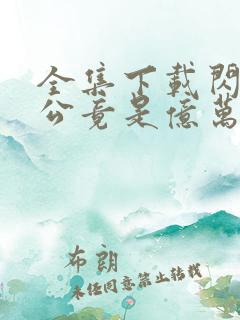 全集下載閃
公竟是億萬
布朗
未經同意禁止轉載